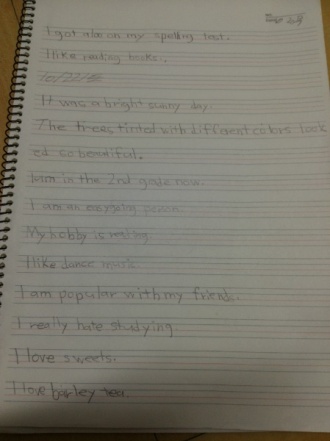 I got 100 on my spelling test.
I like reading books.
10/22/
It was a bright sunny day.
The trees, tinted with different colors look
ed so beautiful.
I am in the 2nd grade now.
I am an easygoing person.
My hobby is reading.
I like dance music.
I am popular with my friends.
I really hate studying.
I love sweets.
I love barley tea.